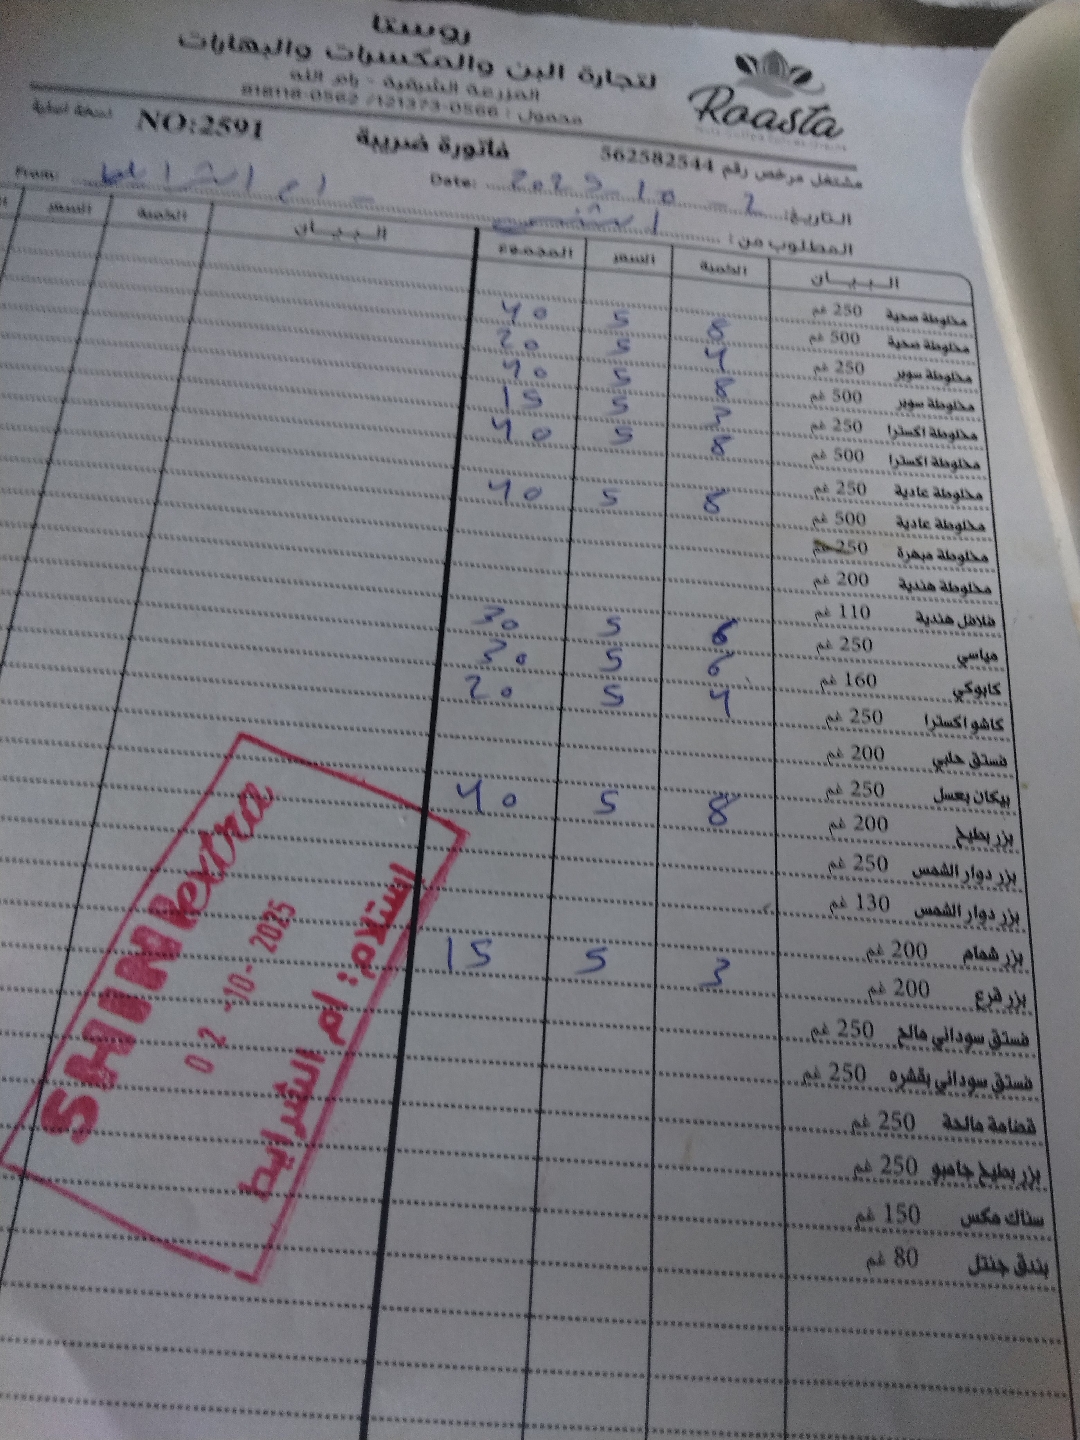 روستا
لتجارة البن والمكسرات والبهارات
المزرعة الشرقية - رام الله
محمول : 0566-121373 / 0562-818118
Roasta
مشتغل مرخص رقم 562582544 فاتورة ضريبية NO:2591 نسخة اصلية
التاريخ: 2 - 10 - 2025 Date: From: ام الشرايط
المطلوب من:
البيـــان الكمية السعر المجموع البيـــان الكمية السعر
مخلوطة صحية 250 غم 8 5 40
مخلوطة صحية 500 غم 4 5 20
مخلوطة سوبر 250 غم 8 5 40
مخلوطة سوبر 500 غم 3 5 15
مخلوطة اكسترا 250 غم 8 5 40
مخلوطة اكسترا 500 غم
مخلوطة عادية 250 غم 8 5 40
مخلوطة عادية 500 غم
مخلوطة مبهرة 250 غم
مخلوطة هندية 200 غم
فلافل هندية 110 غم 6 5 30
مياسي 250 غم 6 5 30
كابوكي 160 غم 4 5 20
كاشو اكسترا 250 غم
فستق حلبي 200 غم
بيكان بعسل 250 غم 8 5 40
بزر بطيخ 200 غم
بزر دوار الشمس 250 غم
بزر دوار الشمس 130 غم
بزر شمام 200 غم 3 5 15
بزر قرع 200 غم
فستق سوداني مالح 250 غم
فستق سوداني بقشره 250 غم
قضامة مالحة 250 غم
بزر بطيخ جامبو 250 غم
سناك مكس 150 غم
بندق جنتل 80 غم
SHINI extra
02 -10- 2025
استلام: ام الشرايط